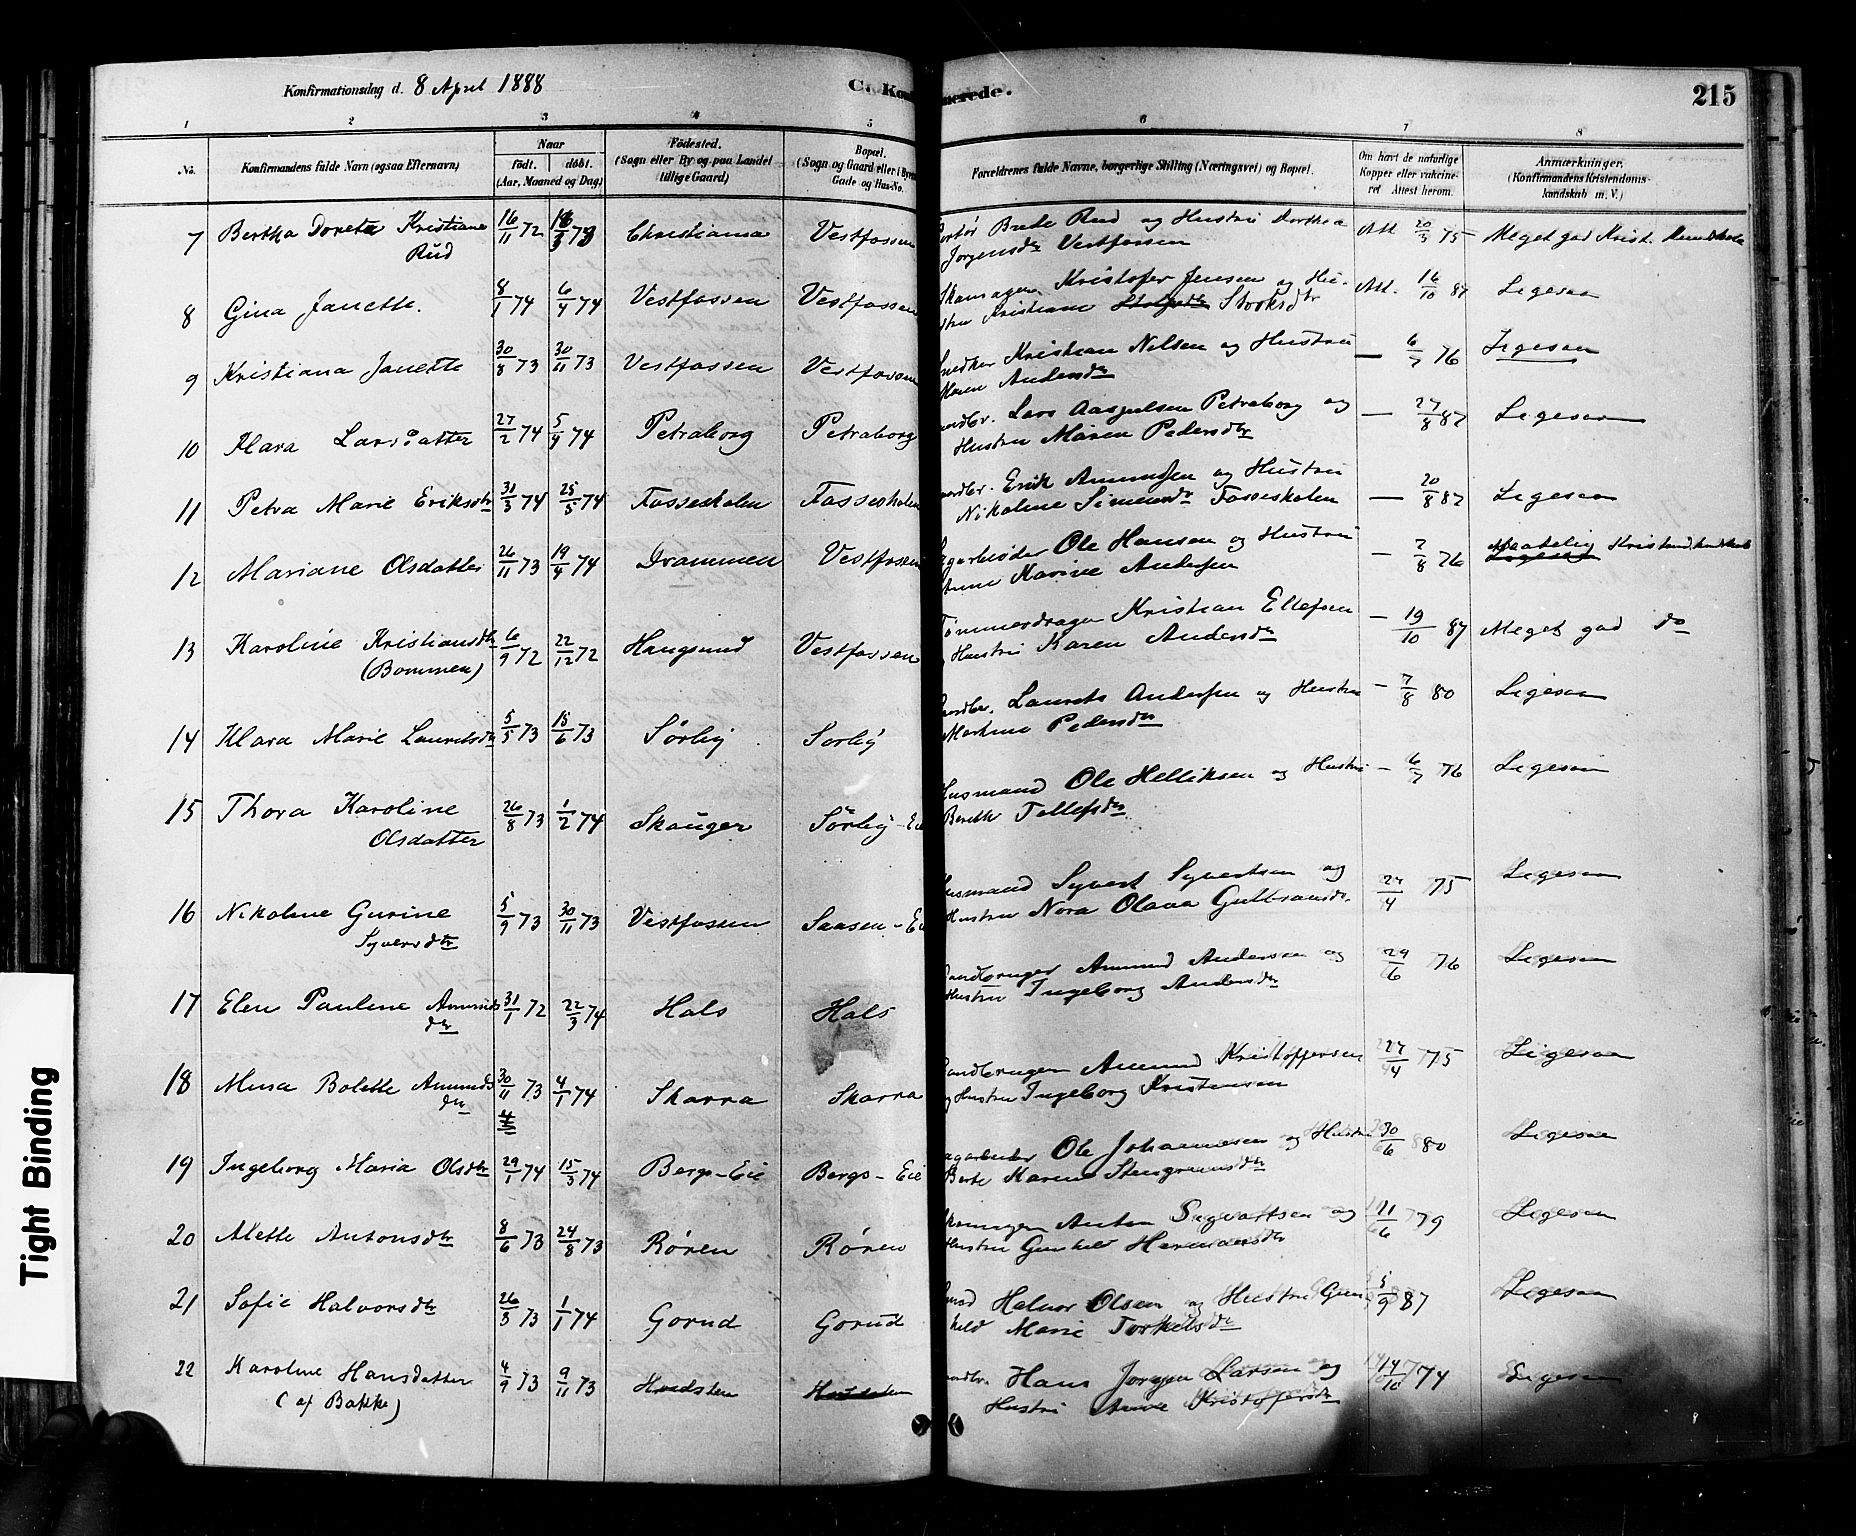 Konfirmationsdag d. 8 April 1888
C. Kon
merede.
215
1 2 3 4 5 6 7 8
No.
Konfirmandens fulde Navn (ogsaa Efternavn)
Naar
født. døbt.
(Aar, Maaned og Dag)
Fødested.
(Sogn eller By og paa Landet
tillige Gaard)
Bopæl.
(Sogn og Gaard eller i Byen
Gade og Hus-No.
Forældrenes fulde Navne, borgerlige Stilling (Næringsvei) og Bopæl.
Om havt de naturlige
Kopper eller vakcine-
ret Attest herom.
Anmærkninger.
(Konfirmandens Kristendoms-
kundskab m. V.)
7 Bertha Doreta Kristiane 16/11 72 73 Christiania Vestfossen Brede Rud og Hustru Dorthea Att 20/3 75 Meget god Krist. Kundskab
Rud Jørgensdtr Vestfossen
8 Gina Janette. 8/1 74 6/4 74 Vestfossen Vestfossen Skomager Kristofer Jensen og Hu- Att. 16/10 87 Ligesaa
stru Kristiane
9 Kristiana Janette 30/8 73 30/11 73 Vestfossen Vestfossen Snedker Kristian Nilsen og Hustru — 6/7 76 Ligesaa
Maren Andersdtr
10 Klara Larsdatter 27/2 74 5/4 74 Petraborg Petraborg Lars Aaspelsen Petraborg og — 27/8 87 Ligesaa
Hustru Maren Pedersdtr
11 Petra Marie Eriksdtr 31/3 74 25/5 74 Fosseskolen Fosseskolen Erik Amundsen og Hustru — 20/8 87 Ligesaa
Nikoline Simensdtr Fosseskolen
12 Mariane Olsdatter 26/11 73 19/4 74 Drammen Vestfossen Ole Hansen og Hustru — 7/8 76 Maadelig Kristend.kundskab
Karine Andersen Ligesaa
13 Karoline Kristiansdtr 6/9 72 22/12 72 Haugsund Vestfossen Tømmerdrager Kristian Ellefsen — 19/10 87 Meget god do
(Bommen) Hustru Karen Andersdtr
14 Klara Marie Lauritsdtr 5/5 73 15/6 73 Sørby Sørby Laurits Andersen og Hustru — 7/8 80 Ligesaa
Martine Pedersdtr
15 Thora Karoline 26/8 73 1/2 74 Skauger Sørby-Eie Husmand Ole Helliksen og Hustru — 6/7 76 Ligesaa
Olsdatter Tollefsdtr
16 Nikoline Gurine 5/9 73 30/11 73 Vestfossen Saasen-Eie Husmand Syvert Syvertsen og 24/4 75 Ligesaa
Syversdtr Hustru Nora Olava Gulbransdtr.
17 Elen Pauline Amunds 31/1 72 22/3 74 Hals Hals Landbruger Amund Andersen og 29/6 76 Ligesaa
dtr Hustru Ingeborg Andersdtr
18 Bolette Amunds 30/11 73 4/1 74 Skarra Skarra Landbruger Amund Kristoffersen 27/4 75 Ligesaa
dtr og Hustru Ingeborg Kristensen
19 Ingeborg Maria Olsdtr 29/1 74 15/3 74 Bergs-Eie Bergs-Eie Ole Johannesen og Hustru 30/6 80 Ligesaa
Karen
20 Alette Antonsdtr 8/6 73 24/8 73 Røren Røren Anton og 79 Ligesaa
Hustru Gunhild Hermansdtr
21 Sofie Halvorsdtr 73 1/1 74 Gorud Gorud Halvor Olsen og Hustru Gun 5/9 87 Ligesaa
hild Marie Torkelsdtr
22 Karoline Hansdatter 4/9 73 9/11 73 Hans Jørgen Larsen og 14/10 74 Ligesaa
(af Bakke) Hustru Anne Kristofersdtr
Tight Binding